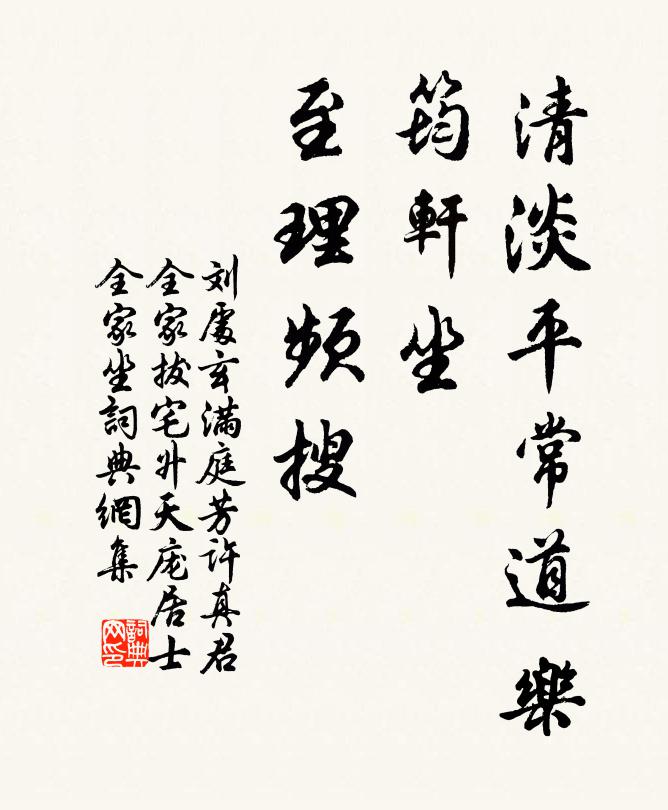 清淡平常道樂
筠軒坐
至理頻搜
刘處玄滿庭芳許真君
全家拔宅升天庞居士
全家坐詞典網集
詞典網印